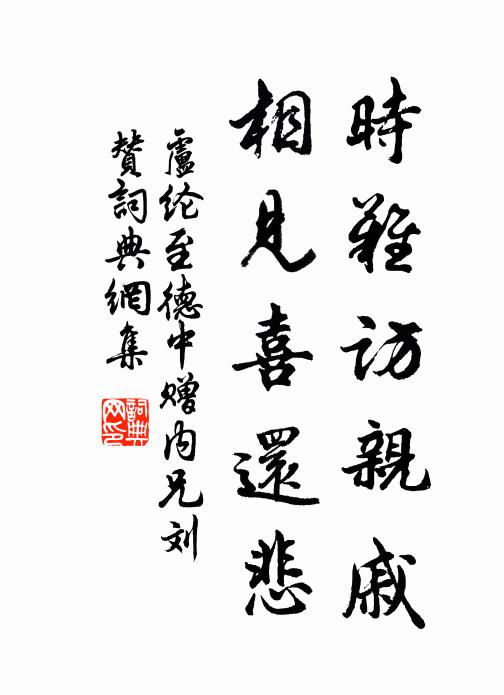 時難訪親戚
相見喜還悲
盧纶至德中赠内兄刘
赞詞典網集
詞典网印